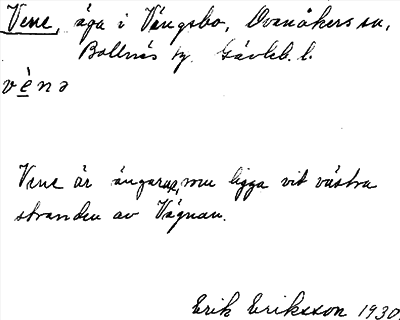 Vene, äga i Vängsbo, Ovanåkers sn,
Bollnäs tg. Gävleb. l.
vènə
Vene är ängarna, som ligga vit västra
stranden av Vägnan.
Erik Eriksson 1930.